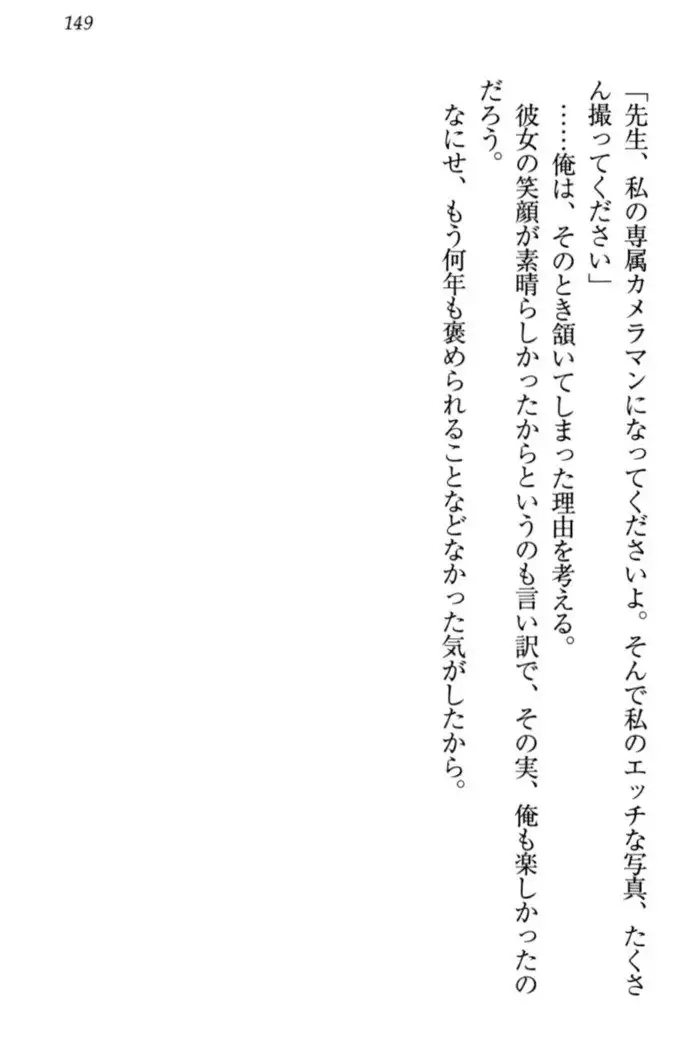 149
「先生、私の専属カメラマンになってくださいよ。そんで私のエッチな写真、たくさ
ん撮ってください」
……俺は、そのとき頷いてしまった理由を考える。
彼女の笑顔が素晴らしかったからというのも言い訳で、その実、俺も楽しかったの
だろう。
なにせ、もう何年も褒められることなどなかった気がしたから。